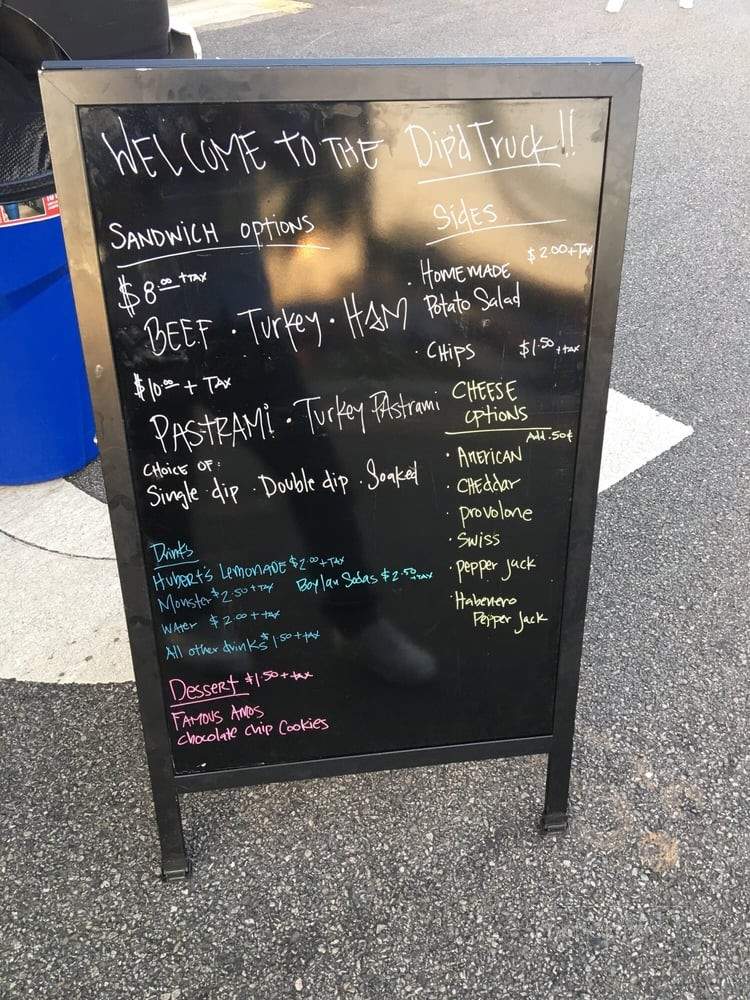 WELCOME TO THE Dip'd Truck!!
SANDWICH OPTIONS
$8.00 + TAX
BEEF · Turkey · HAM
$10.00 + TAX
PASTRAMI · Turkey PAstrami
CHOICE OF:
Single dip · Double dip · Soaked
Sides
$2.00+Tax
· HOMEMADE
Potato Salad
· CHIPS $1.50 + tax
CHEESE
OPTIONS
Add .50¢
· AMERICAN
· CHEddar
· provolone
· Swiss
· pepper jack
· Habenero
Pepper Jack
Drinks
HUBERT'S LEMONADE $2.00 + TAX
Monster $2.50 + TAX Boylan Sodas $2.50 +TAX
WATER $2.00 + tax
All other drinks $1.50 + tax
Dessert $1.50 + tax
FAMOUS AMOS
Chocolate Chip Cookies